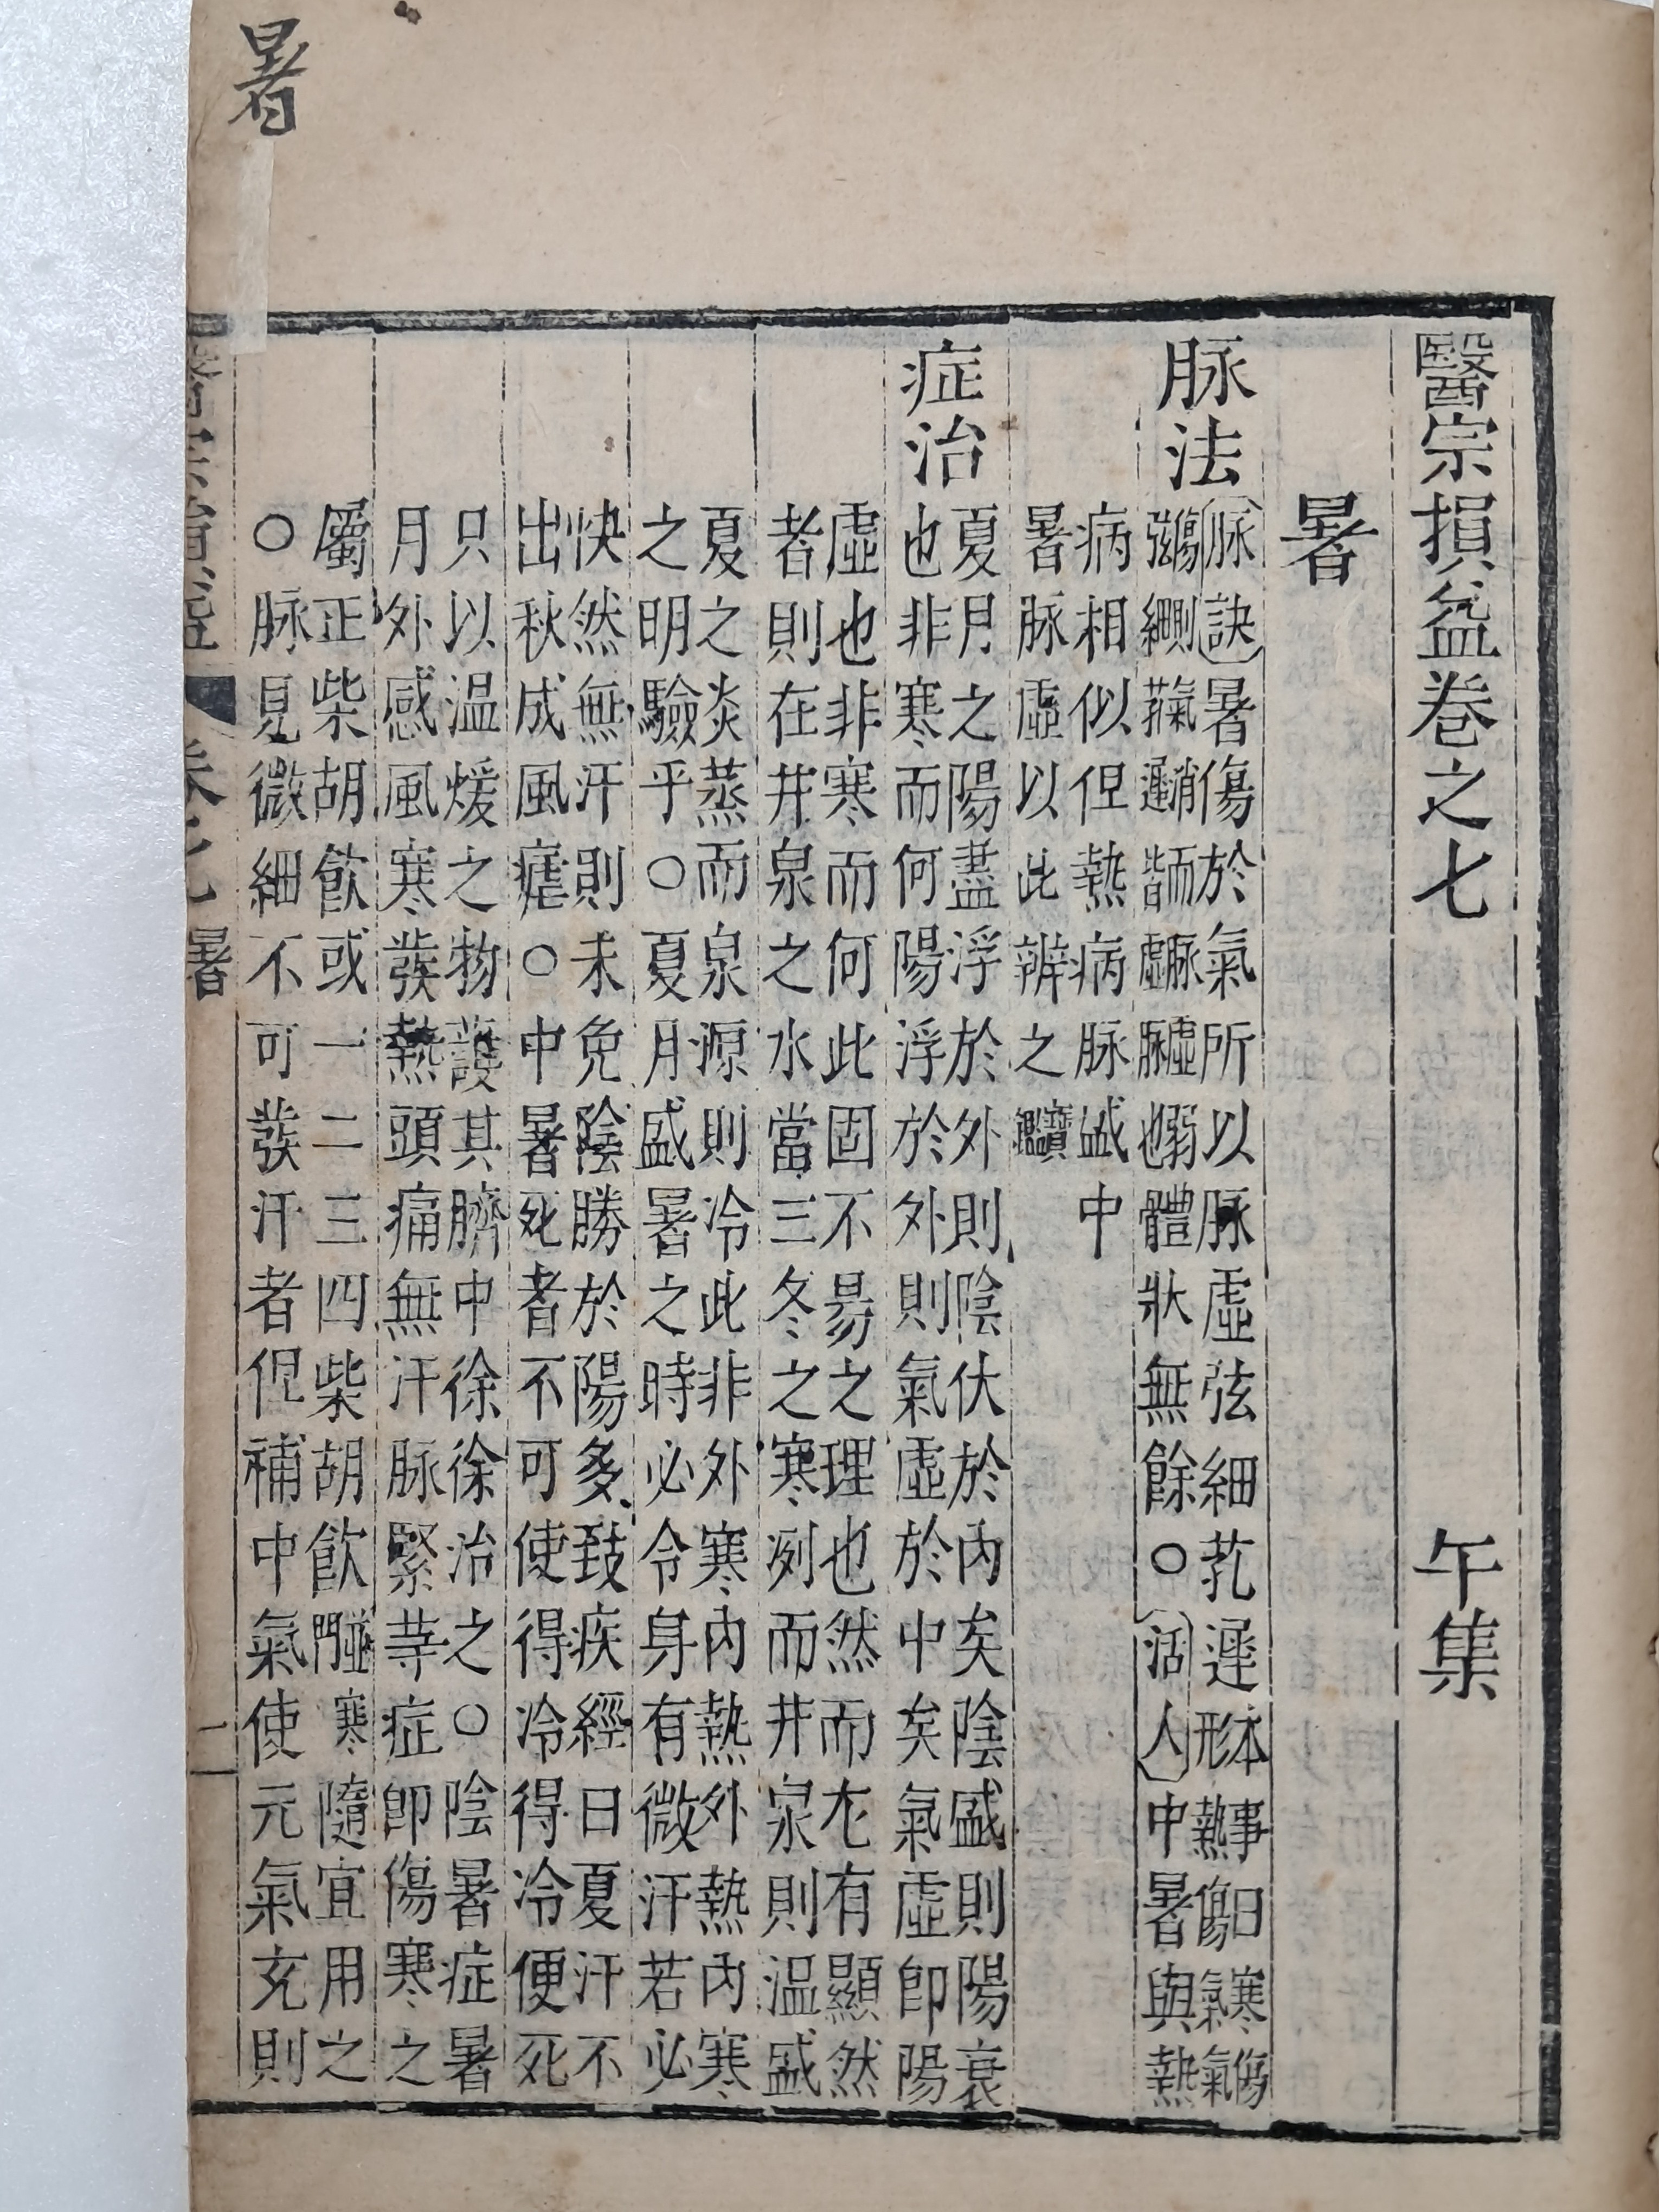 暑
醫宗損益卷之七 午集
暑
脉法
脉訣暑傷於氣所以脉虛弦細芤遲本事曰寒傷
形熱傷氣氣
傷則氣消而脉虛弱
弦細芤遲皆虛脉也體狀無餘○活人中暑與熱
病相似但熱病脉盛中
暑脉虛以此辨之寶鑑
症治
夏月之陽盡浮於外則陰伏於內矣陰盛則陽衰
也非寒而何陽浮於外則氣虛於中矣氣虛卽陽
虛也非寒而何此固不易之理也然而尤有顯然
者則在井泉之水當三冬之寒冽而井泉則温盛
夏之炎蒸而泉源則冷此非外寒內熱外熱內寒
之明驗乎○夏月盛暑之時必令身有微汗若必
快然無汗則未免陰勝於陽多致疾經曰夏汗不
出秋成風瘧○中暑死者不可使得冷得冷便死
只以温煖之物護其臍中徐徐治之○陰暑症暑
月外感風寒發熱頭痛無汗脉緊等症卽傷寒之
屬正柴胡飮或一二三四柴胡飮並寒門隨宜用之
○脉見微細不可發汗者但補中氣使元氣充則
暑